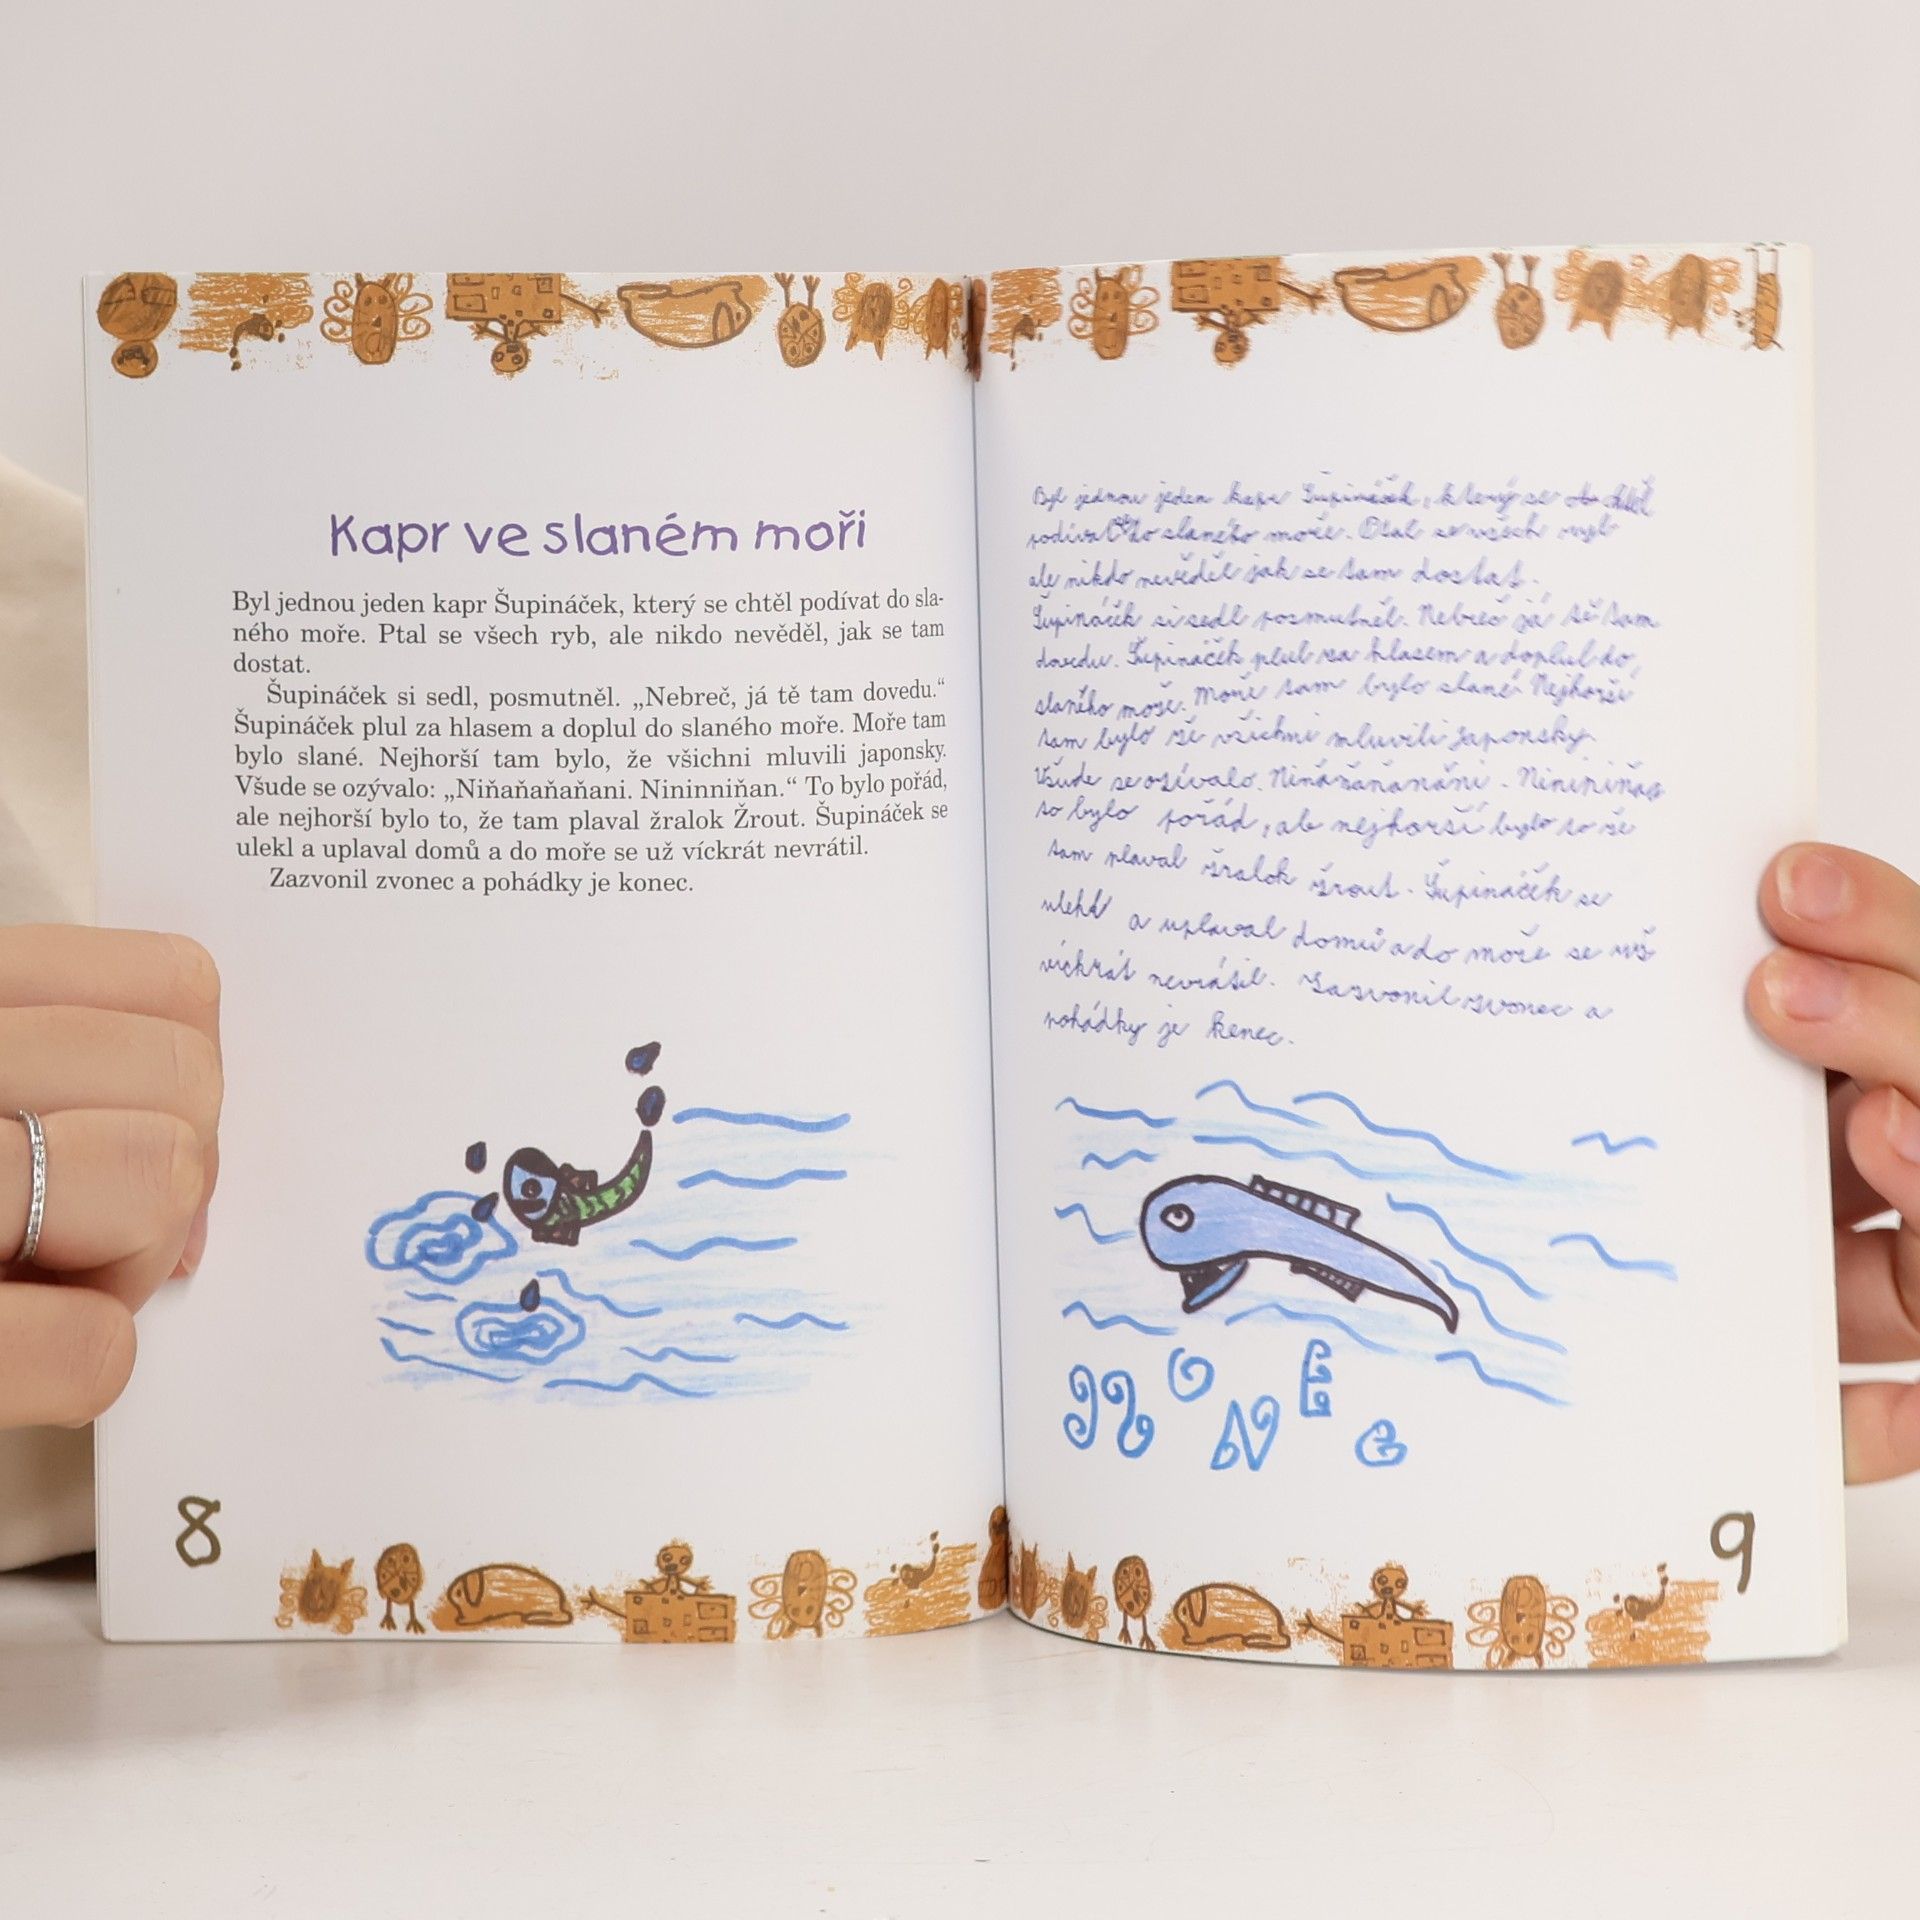 Kapr ve slaném moři
Byl jednou jeden kapr Šupináček, který se chtěl podívat do sla-
ného moře. Ptal se všech ryb, ale nikdo nevěděl, jak se tam
dostat.
Šupináček si sedl, posmutněl. „Nebreč, já tě tam dovedu.“
Šupináček plul za hlasem a doplul do slaného moře. Moře tam
bylo slané. Nejhorší tam bylo, že všichni mluvili japonsky.
Všude se ozývalo: „Niňaňaňaňani. Nininniňan.“ To bylo pořád,
ale nejhorší bylo to, že tam plaval žralok Žrout. Šupináček se
ulekl a uplaval domů a do moře se už víckrát nevrátil.
Zazvonil zvonec a pohádky je konec.
8
Byl jednou jeden kapr Šupináček, který se chtěl
podívat do slaného moře. Ptal se všech ryb
ale nikdo nevěděl jak se tam dostat.
Šupináček si sedl posmutněl. Nebreč já tě tam
dovedu. Šupináček plul za hlasem a doplul do
slaného moře. Moře tam bylo slané. Nejhorší
tam bylo že všichni mluvili japonsky.
Všude se ozívalo.
to bylo pořád, ale nejhorší bylo to že
tam plaval žralok žrout. Šupináček se
ulekl a uplaval domů a do moře se už
víckrát nevrátil. Zazvonil zvonec a
pohádky je konec.
KONEC
9